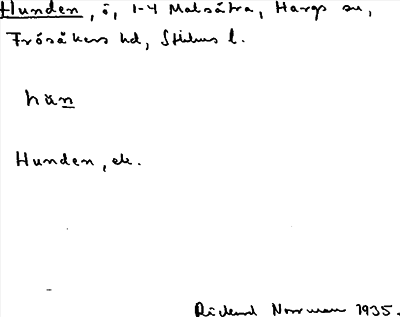 Hunden, ö, 1-4 Malsätra, Hargs sn,
Frösåkers hd, Sthlms l.
hun
Hunden, ek.
Rickard Norrman 1935.